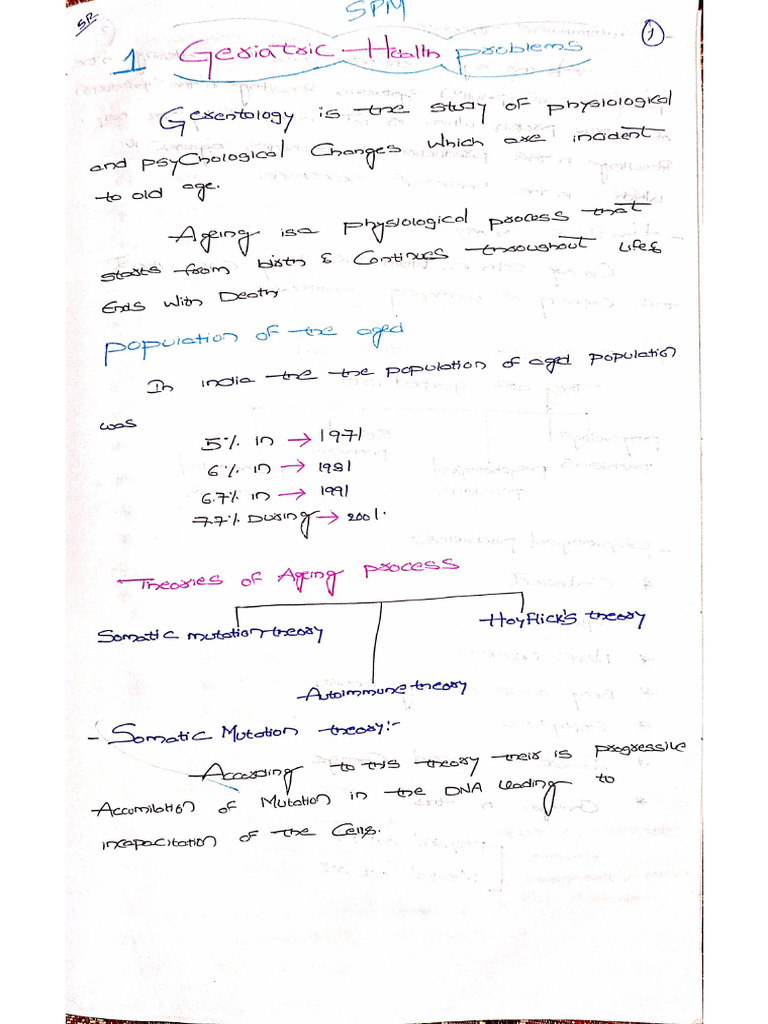 SR
SPM
1
1 Geriatric Health problems
Gerentology is the study of physiological
and psychological Changes which are incident
to old age.
Ageing is a physiological process that
starts from birth & Continues throughout life &
Ends with Death
population of the aged
In india the the population of aged population
was
5% in → 1971
6% in → 1981
6.7% in → 1991
7.7% During → 2001.
Theories of Ageing process
Somatic mutation theory
Hayflick's theory
Autoimmune theory
- Somatic Mutation theory:-
According to this theory their is progressive
Accumilation of Mutation in the DNA leading to
incapacitation of the Cells.